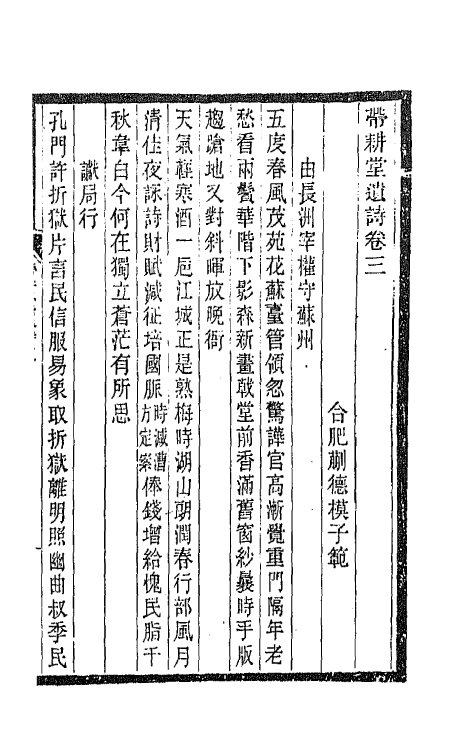 帶耕堂遺詩卷三
合肥蒯德模子範
由長洲宰擢守蘇州
五度春風茂苑花蘇臺管領忽驚譁官高漸覺重門隔年老
愁看兩鬢華階下影森新畫戟堂前香滿舊窗紗曩時手版
趨蹌地又對斜暉放晚衙
天氣輕寒酒一巵江城正是熟梅時湖山朝潤春行部風月
清佳夜誦詩財賦減征培國脈時減漕方定案俸錢增給愧民脂干
秋韋白今何在獨立蒼茫有所思
讞局行
孔門許折獄片言民信服易象取折獄離明照幽曲叔季民